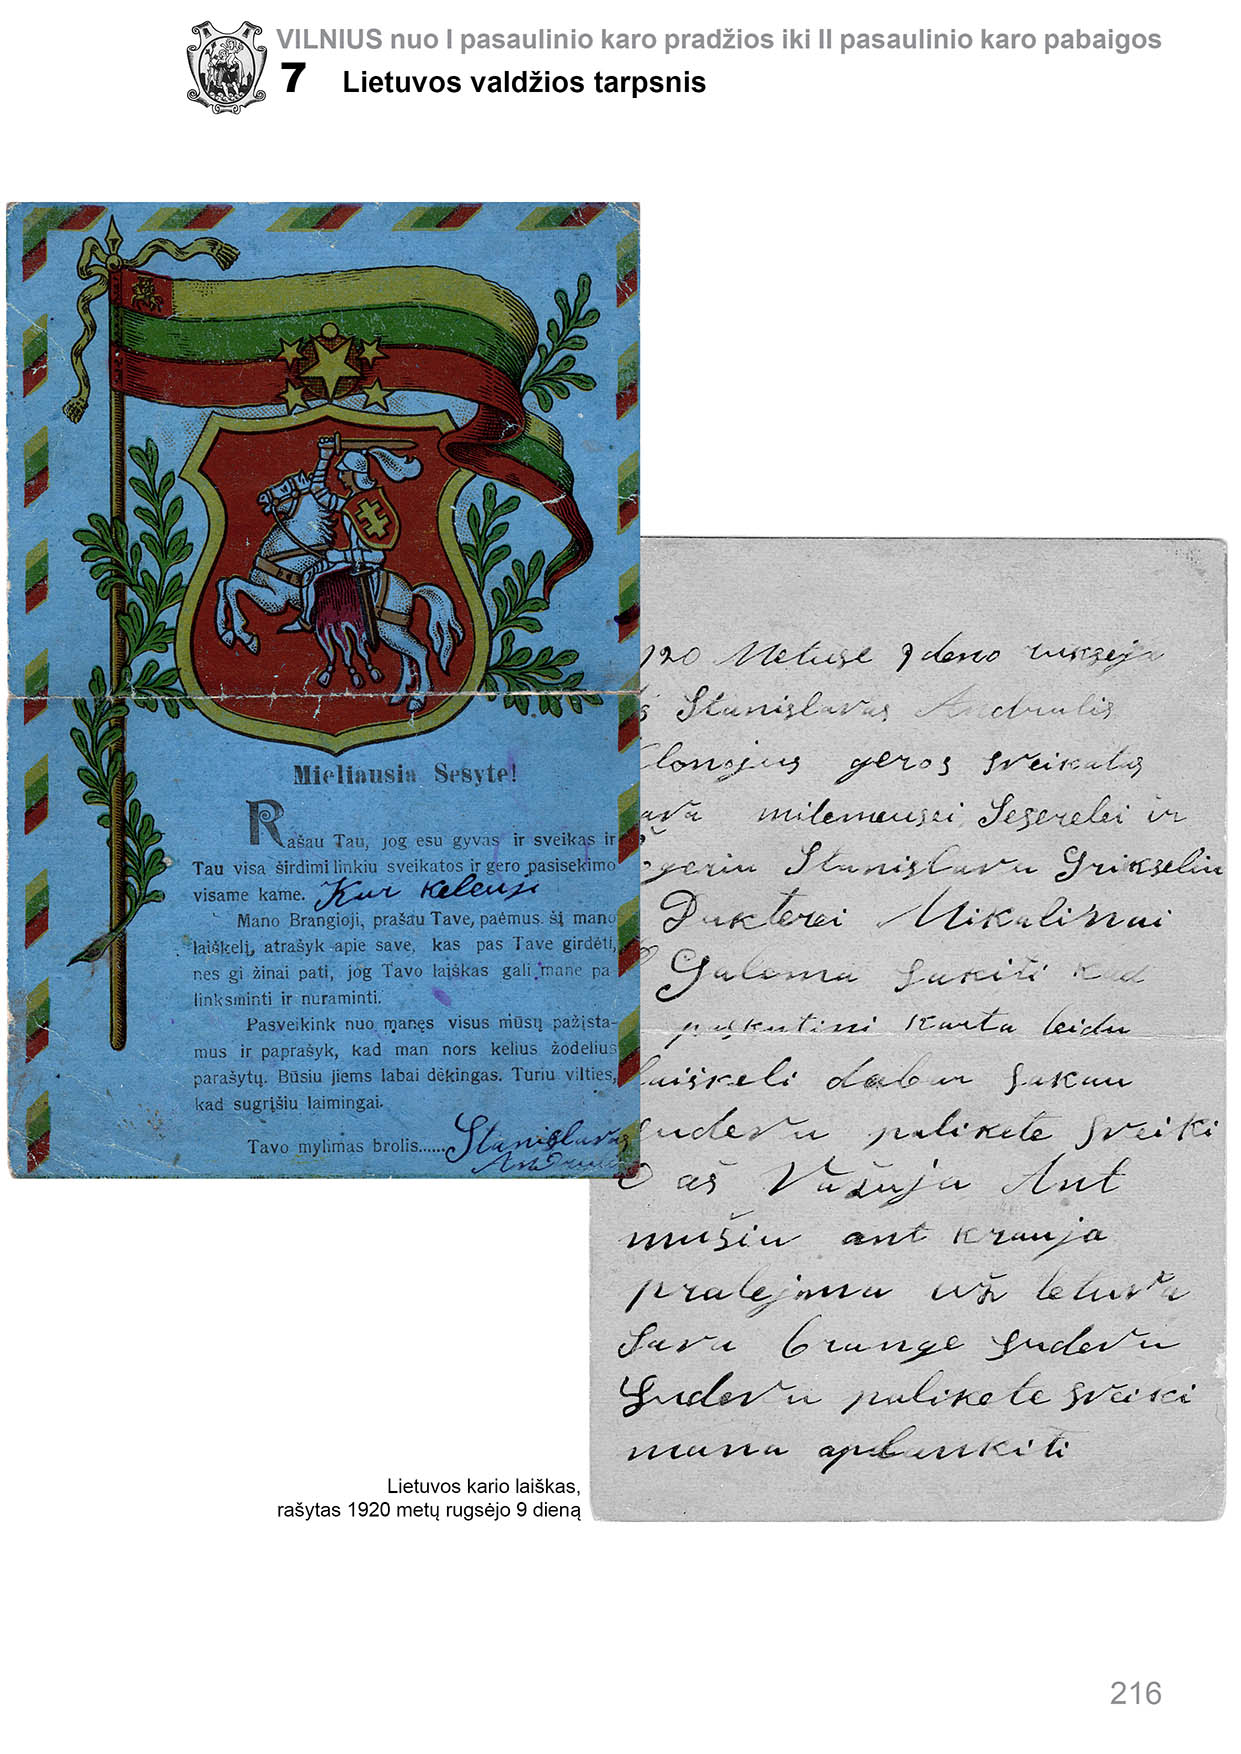 VILNIUS nuo I pasaulinio karo pradžios iki II pasaulinio karo pabaigos
7 Lietuvos valdžios tarpsnis
Mieliausia Sesyte!
Rašau Tau, jog esu gyvas ir sveikas ir
Tau visa širdimi linkiu sveikatos ir gero pasisekimo
visame kame. Kur keleusi
Mano Brangioji, prašau Tave, paėmus šį mano
laiškelį, atrašyk apie save, kas pas Tave girdėti,
nes gi žinai pati, jog Tavo laiškas gali mane pa
linksminti ir nuraminti.
Pasveikink nuo manęs visus mūsų pažįsta-
mus ir paprašyk, kad man nors kelius žodelius
parašytų. Būsiu jiems labai dėkingas. Turiu vilties,
kad sugrįšiu laimingai.
Tavo mylimas brolis......Stanislavas
Andrulis
920 Metuse 9 deno rukseja
Stanislavas Andrulis
geros sveikatas
milemeusei Seserelei ir
Stanislavu Grikselin
Dukterei Mikalinai
Galema sakiti kad
paskutini karta leidu
laiškeli dabar sakau
sudevu palikete sveiki
O aš Važuja Ant
mušiu ant krauja
pralejema už letuva
sava brange sudevu
Sudevu palikete sveiki
mana aplankiti
Lietuvos kario laiškas,
rašytas 1920 metų rugsėjo 9 dieną
216